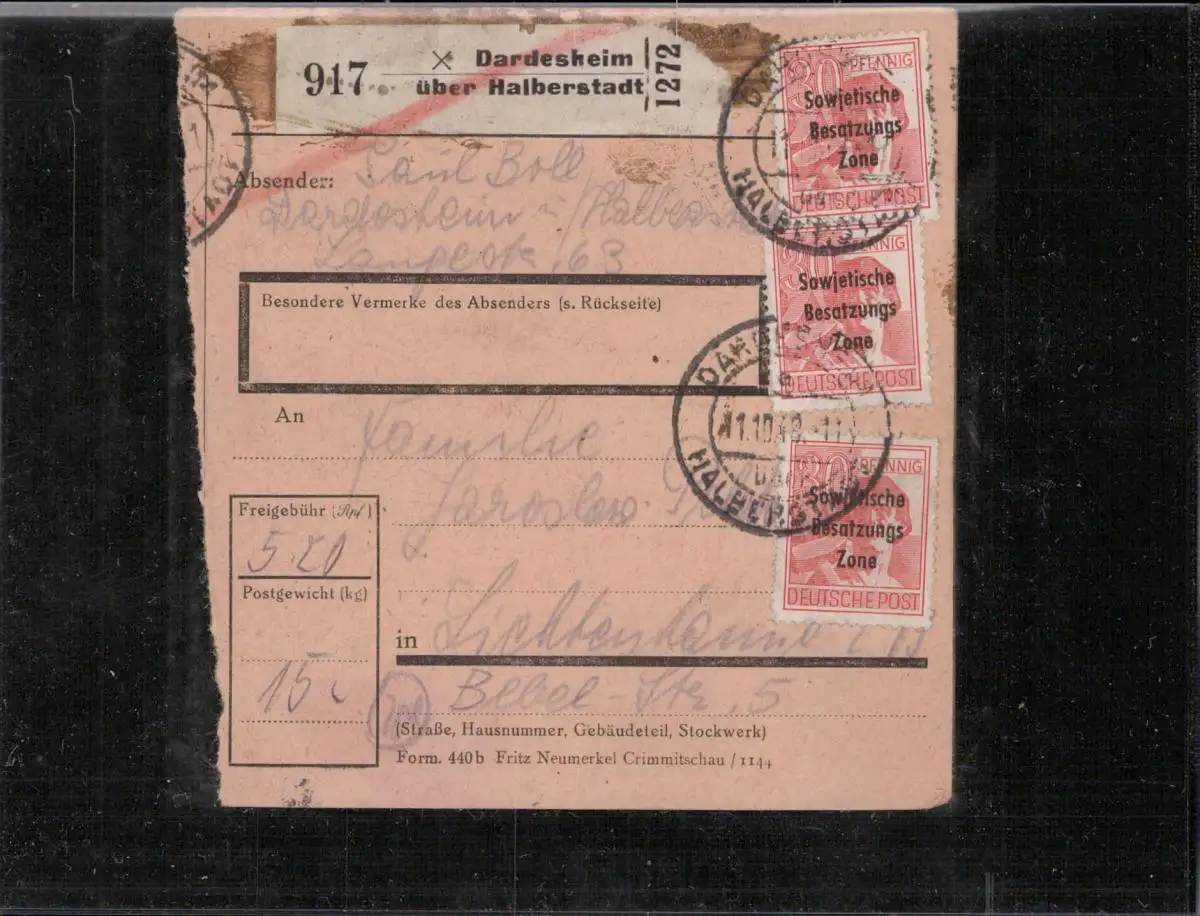 917 × Dardesheim
über Halberstadt
1272
30 PFENNIG
Sowjetische
Besatzungs
Zone
DEUTSCHE POST
HALBERST
Absender: Paul Boll
Dardesheim Halberst
Langestr. 63
30 PFENNIG
Sowjetische
Besatzungs
Zone
DEUTSCHE POST
Besondere Vermerke des Absenders (s. Rückseite)
DARDES
11.10.48.-11
HALBERST
An Familie
Jaroslow
30 PFENNIG
Sowjetische
Besatzungs
Zone
DEUTSCHE POST
Freigebühr (Rpf)
5.20
Postgewicht (kg)
15
in Lichtentanne
Bebel-Str. 5
(Straße, Hausnummer, Gebäudeteil, Stockwerk)
Form. 440b Fritz Neumerkel Crimmitschau / 1144